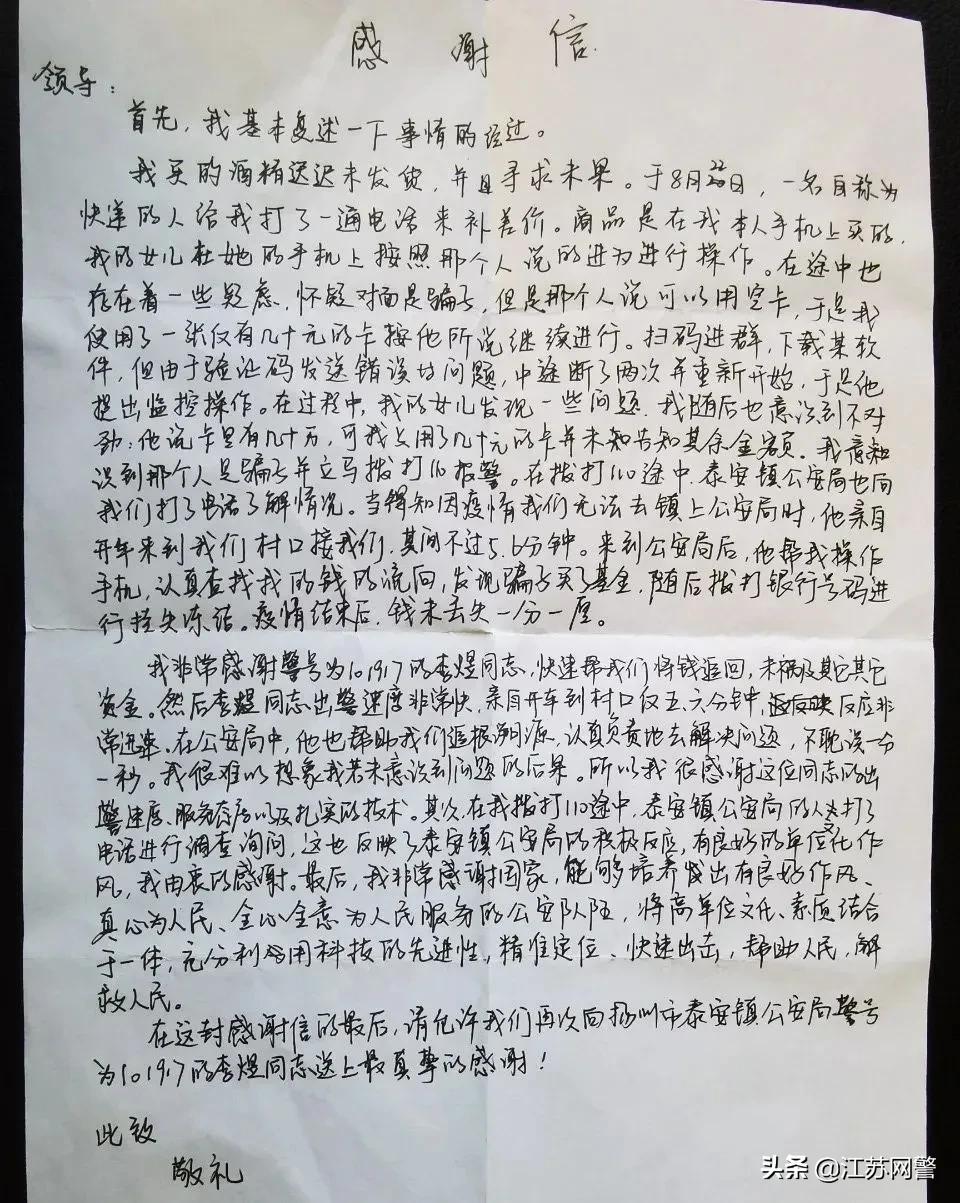 感谢信
领导：
首先，我基本复述一下事情的经过。
我买的酒精迟迟未发货，并且寻求未果。于8月28日，一名自称为
快递的人给我打了一通电话来补差价。商品是在我本人手机上买的，
我的女儿在她的手机上按照那个人说的进行操作。在途中也
存在着一些疑虑，怀疑对面是骗子，但是那个人说可以用空卡，于是我
使用了一张仅有几十元的卡按他所说继续进行。扫码进群，下载某软
件，但由于验证码发送错误的问题，中途断了两次并重新开始，于是他
提出监控操作。在过程中，我的女儿发现一些问题，我随后也意识到不对
劲：他说卡里有几十万，可我只用了几十元的卡并未告知其余金额。我意
识到那个人是骗子并立马拨打110报警。在拨打110途中，泰安镇公安局也向
我们打了电话了解情况。当得知因疫情我们无法去镇上公安局时，他亲自
开车来到我们村口接我们，其间不过5、6分钟。来到公安局后，他帮我操作
手机，认真查找我的钱的流向，发现骗子买了基金，随后拨打银行号码进
行挂失冻结。疫情结束后，钱未丢失一分一厘。
我非常感谢警号为101917的李煜同志，快速帮我们将钱追回，未祸及其它
资金。然后李煜同志出警速度非常快，亲自开车到村口仅五、六分钟，反应非
常迅速。在公安局中，他也帮助我们追根溯源，认真负责地去解决问题，不耽误一分
一秒。我很难以想象我若未意识到问题的后果。所以我很感谢这位同志的出
警速度、服务态度以及扎实的技术。其次，在我拨打110途中，泰安镇公安局的人打了
电话进行调查询问，这也反映了泰安镇公安局的积极反应，有良好的单位文化作
风，我由衷的感谢。最后，我非常感谢国家，能够培养出有良好作风、
真心为人民、全心全意为人民服务的公安队伍，将高单位文化、素质结合
于一体，充分利用科技的先进性，精准定位、快速出击，帮助人民，解
救人民。
在这封感谢信的最后，请允许我们再次向扬州市泰安镇公安局警号
为101917的李煜同志送上最真挚的感谢！
此致
敬礼
头条 @江苏网警